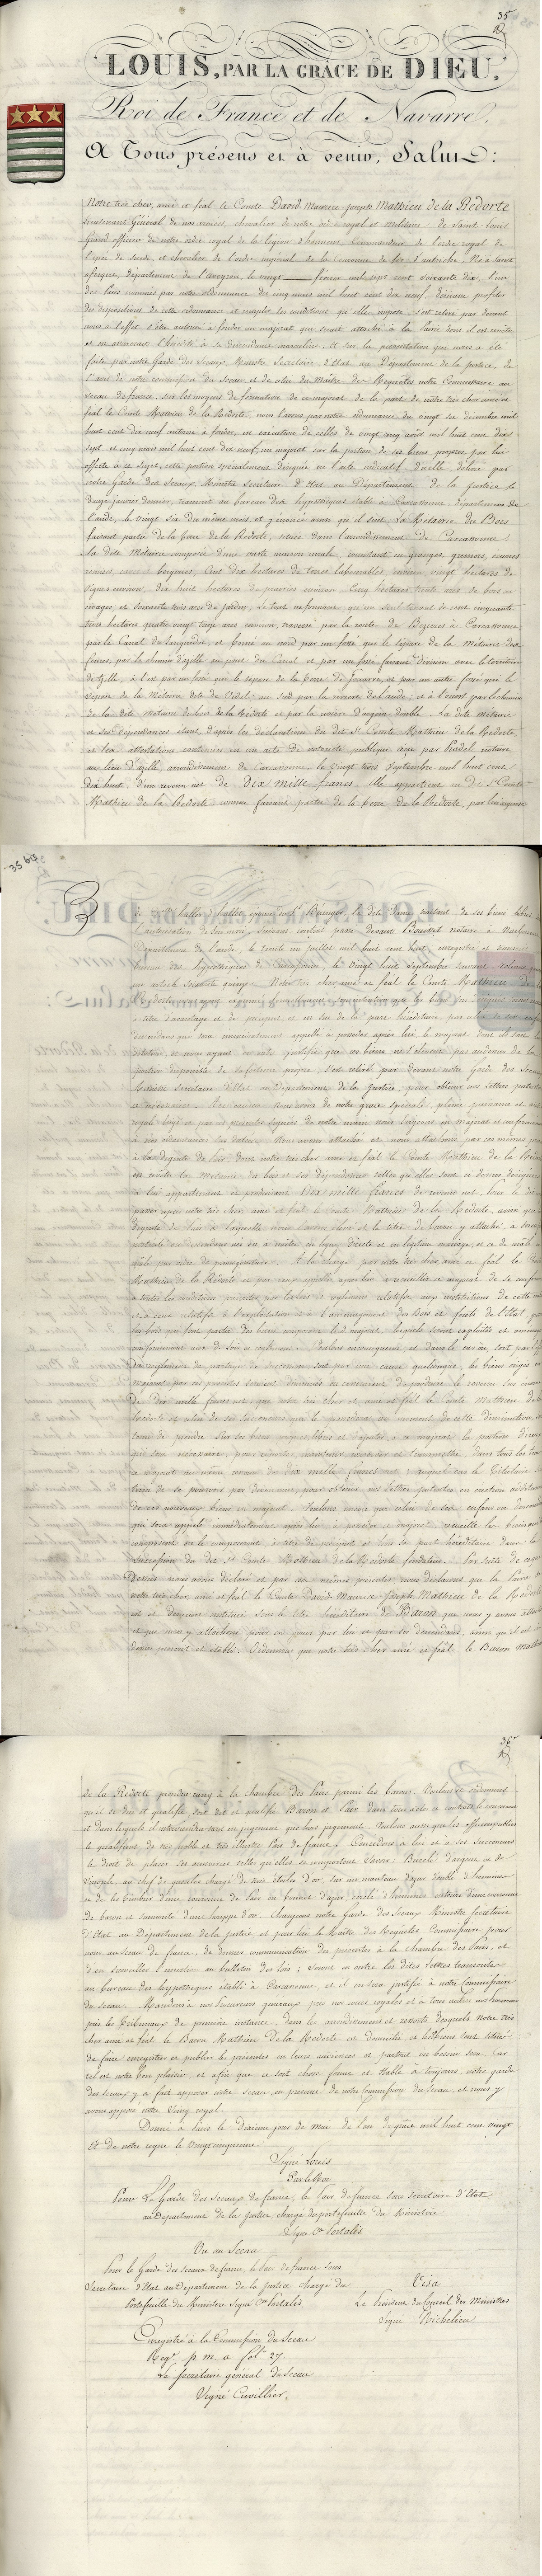 35
LOUIS, PAR LA GRÂCE DE DIEU,
Roi de France et de Navarre,
A Tous présens et à venir, Salut:
Notre très cher, amé et féal le Comte David Maurice Joseph Mathieu de la Redorte
Lieutenant Général de nos armées, chevalier de notre ordre royal et militaire de Saint Louis
Grand officier de notre ordre royal de la légion d'honneur, Commandeur de l'ordre royal de
l'épée de Suède et chevalier de l'ordre impérial de la Couronne de fer d'autriche. Né à Saint
afrique, département de l'aveyron, le vingt février mil sept cent soixante dix, l'un
des Pairs nommés par notre ordonnance du cinq mars mil huit cent dix neuf, désirant profiter
des dispositions de cette ordonnance et remplir les conditions qu'elle impose, s'est retiré par devant
nous à l'effet d'être autorisé à fonder un majorat qui serait attaché à la Pairie dont il est revêtu
et en assurerait l'hérédité à sa descendance masculine, et sur la présentation que nous a été
faite par notre Garde des Sceaux, Ministre Secrétaire d'Etat au Département de la Justice, de
l'avis de notre commission du Sceau et de celui du Maître des Requêtes notre Commissaire au
Sceau de france, sur les moyens de formation de ce majorat de la part de notre très cher amé et
féal le Comte Mathieu de la Redorte, nous l'avons par notre ordonnance du vingt six décembre mil
huit cent dix neuf autorisé à fonder, en exécution de celles de vingt cinq août mil huit cent dix
sept, et cinq mars mil huit cent dix neuf, un majorat sur la portion de ses biens proposée par lui
offerte à ce sujet, cette portion spécialement désignée en l'acte indicatif d'icelle délivré par
notre Garde des Sceaux Ministre secrétaire d'Etat au Département de la Justice le
douze janvier dernier, transcrit au bureau des hypothèques établi à Carcassonne, département de
l'aude, le vingt six du même mois, et énoncée ainsi qu'il suit. La Métairie du Bois
faisant partie de la terre de la Redorte, située dans l'arrondissement de Carcassonne;
la dite Métairie composée d'une vaste maison rurale consistant en granges, greniers, écuries
remises cave et bergeries, Cent dix hectares de terres labourables environ, vingt hectares de
Vignes environ, dix huit hectares de prairies environ, Cinq hectares trente ares de bois ou
rivages, et soixante trois ares de jardin, le tout ne formant qu'un seul ténement de cent cinquante
trois hectares quatre vingt treize ares environ, traversé par la route de Béziers à Carcassonne,
par le Canal du Languedoc, et borné au nord par un fossé qui le sépare de la métairie des
fermes, par le chemin d'azille au pont du Canal et par un fossé faisant division avec le territoire
d'azille, à l'est par un fossé qui le sépare de la terre de Jouarre, et par un autre fossé qui le
sépare de la Métairie dite de Vidal; au sud par la rivière de l'aude; et à l'ouest par le chemin
de la dite métairie du bois de la Redorte et par la rivière d'argent double. La dite métairie
et ses dépendances étant d'après les déclarations du dit Sr Comte Mathieu de la Redorte,
et les attestations contenues en un acte de notoriété publique reçu par Pradel notaire
au lieu d'azille, arrondissement de Carcassonne, le vingt trois septembre mil huit cent
dix huit, d'un revenu net de Dix mille francs. Elle appartient au dit Sr Comte
Mathieu de la Redorte comme faisant partie de la terre de la Redorte, par lui acquise
35 bis
l'autorisation de son mari, suivant contrat passé devant Bousset notaire à Narbonne
Département de l'aude, le trente un juillet mil huit cent huit, enregistré et transcrit
bureau des hypothèques de Carcassonne, le vingt huit septembre suivant, volume
un article soixante quinze. Notre très cher amé et féal le Comte Mathieu de la
à titre d'avantage et de préciput et en sus de la part héréditaire, par celui de ses enfans
descendans qui sera immédiatement appelé à posséder après lui, le majorat dont ils sont la
dotation, et nous ayant de suite justifié que ces biens ne s'élèvent pas au dessus de la
portion disponible de sa fortune propre, s'est retiré par devant notre Garde des Sceaux
Ministre secrétaire d'Etat au Département de la Justice, pour obtenir nos Lettres patentes
à ce nécessaires. A ces causes Nous avons de notre grâce spéciale, pleine puissance et autorité
royale érigé et par ces présentes signées de notre main nous érigeons en majorat et conformément
à nos ordonnances sus datées, Nous avons attachés et nous attachons par ces mêmes présentes
à la dignité de Pair dont notre très cher amé et féal le Comte Mathieu de la Redorte
est revêtu la Métairie du bois et ses dépendances telles qu'elles sont ci dessus désignées
à lui appartenant et produisant Dix mille francs de revenu net, pour le dit
passer après notre très cher, amé et féal le Comte Mathieu de la Redorte, ainsi que la
dignité de Pair à laquelle nous l'avons élevé et le titre de Baron y attaché, à ses enfans
postérité ou descendance nés ou à naître en ligne directe et en légitime mariage, et ce de mâle en
mâle par ordre de primogéniture. A la charge par notre très cher, amé et féal le Comte
Mathieu de la Redorte et par ceux appelés après lui à recueillir ce majorat de se conformer
à toutes les conditions prescrites par les lois et règlemens relatifs aux institutions de cette nature
et à ceux relatifs à l'exploitation et à l'aménagement des Bois et forêts de l'Etat, pour
les bois qui font partie des biens composant le dit majorat, lesquels seront exploités et aménagés
conformément aux dits lois et règlemens. Voulons en conséquence et dans le cas où, soit par l'effet
de règlemens de partage de succession soit par une cause quelconque, les biens érigés en
Majorat par ces présentes seraient diminués ou cesseraient de produire le revenu sus énoncé
de dix mille francs net, que notre très cher et amé et féal le Comte Mathieu de la
Redorte et celui de ses successeurs qui le possédera au moment de cette diminution,
tenu de prendre sur ses biens disponibles et d'ajouter à ce majorat la portion d'iceux
qui sera nécessaire, pour
ce majorat au même revenu de dix mille francs net, auquel cas le Titulaire
tenu de se pourvoir par devant nous, pour obtenir nos lettres patentes
de ces nouveaux biens en majorat. Voulons encore que celui de ses enfans ou descendans
qui sera appelé immédiatement après lui à posséder ce majorat recueille les biens qui
composent ou le composeront à titre de préciput et hors sa part héréditaire dans la
succession du dit Sr Comte Mathieu de la Redorte fondateur. Par suite de ce que
Dessus nous avons déclaré et par ces mêmes présentes nous déclarons que la Pairie de
notre très cher amé et féal le Comte David Maurice Joseph Mathieu de la Redorte
est et demeure instituée sous le titre héréditaire de Baron que nous y avons attaché
et que nous y attachons, pour en jouir par lui et par ses descendans, ainsi qu'il est ci
dessus prescrit et établi. Ordonnons que notre très cher amé et féal le Baron Mathieu
36
de la Redorte prendra rang à la chambre des Pairs parmi les barons. Voulons et ordonnons
qu'il se dise et qualifie, soit dit et qualifié Baron et Pair dans tous actes et contrats le concernant
et dans lesquels il interviendra tant en jugement que hors jugement. Voulons aussi que les officiers publics
le qualifient de très noble et très illustre Pair de france. Concédons à lui et à ses successeurs
le droit de placer ses armoiries telles qu'elles se comportent Savoir: Burelé d'argent et de
Sinople, au chef de gueules chargé de trois étoiles d'or, sur un manteau d'azur doublé d'hermines
et de les timbrer d'une couronne de Pair ou bonnet d'azur cerclé d'hermines entouré d'une couronne
de baron et surmonté d'une houppe d'or. Chargeons notre Garde des Sceaux Ministre Secrétaire
d'Etat au Département de la justice, et pour lui le Maître des Requêtes Commissaire pour
nous au Sceau de france, de donner communication des présentes à la chambre des Pairs, et
d'en surveiller l'insertion au bulletin des lois; Seront en outre les dites lettres transcrites
au bureau des hypothèques établi à Carcassonne, et il en sera justifié à notre Commissaire
du sceau. Mandons à nos Procureurs généraux près nos cours royales et à tous autres nos Procureurs
près les Tribunaux de première instance, dans les arrondissement et ressorts desquels Notre très
cher amé et féal le Baron Mathieu de la Redorte est domicilié et les biens sont situés
de faire enregistrer et publier les présentes en leurs audiences et partout où besoin sera. Car
tel est notre bon plaisir, et afin que ce soit chose ferme et stable à toujours, notre garde
des sceaux y a fait apposer notre Sceau, en présence de notre Commission du Sceau, et nous y
avons apposé notre Seing royal.
Donné à Paris le dixième jour de mai de l'an de grâce mil huit cent vingt
Et de notre règne le Vingt cinquième
Signé Louis
Par le Roi
Pour Le Garde des Sceaux de france, le Pair de france Sous secrétaire d'Etat
au Département de la Justice chargé du portefeuille du Ministère
Signé Cte Portalis
Vu au Sceau
Pour le Garde des sceaux de france, le Pair de france Sous
Secrétaire d'Etat au Département de la Justice chargé du
Portefeuille du Ministère Signé Cte Portalis.
Visa
Le Président du Conseil des Ministres
Signé Richelieu
Enregistré à la Commission du Sceau
Regre p. m. a fol. 27.
Le Secrétaire général du Sceau
Signé Cuvillier.